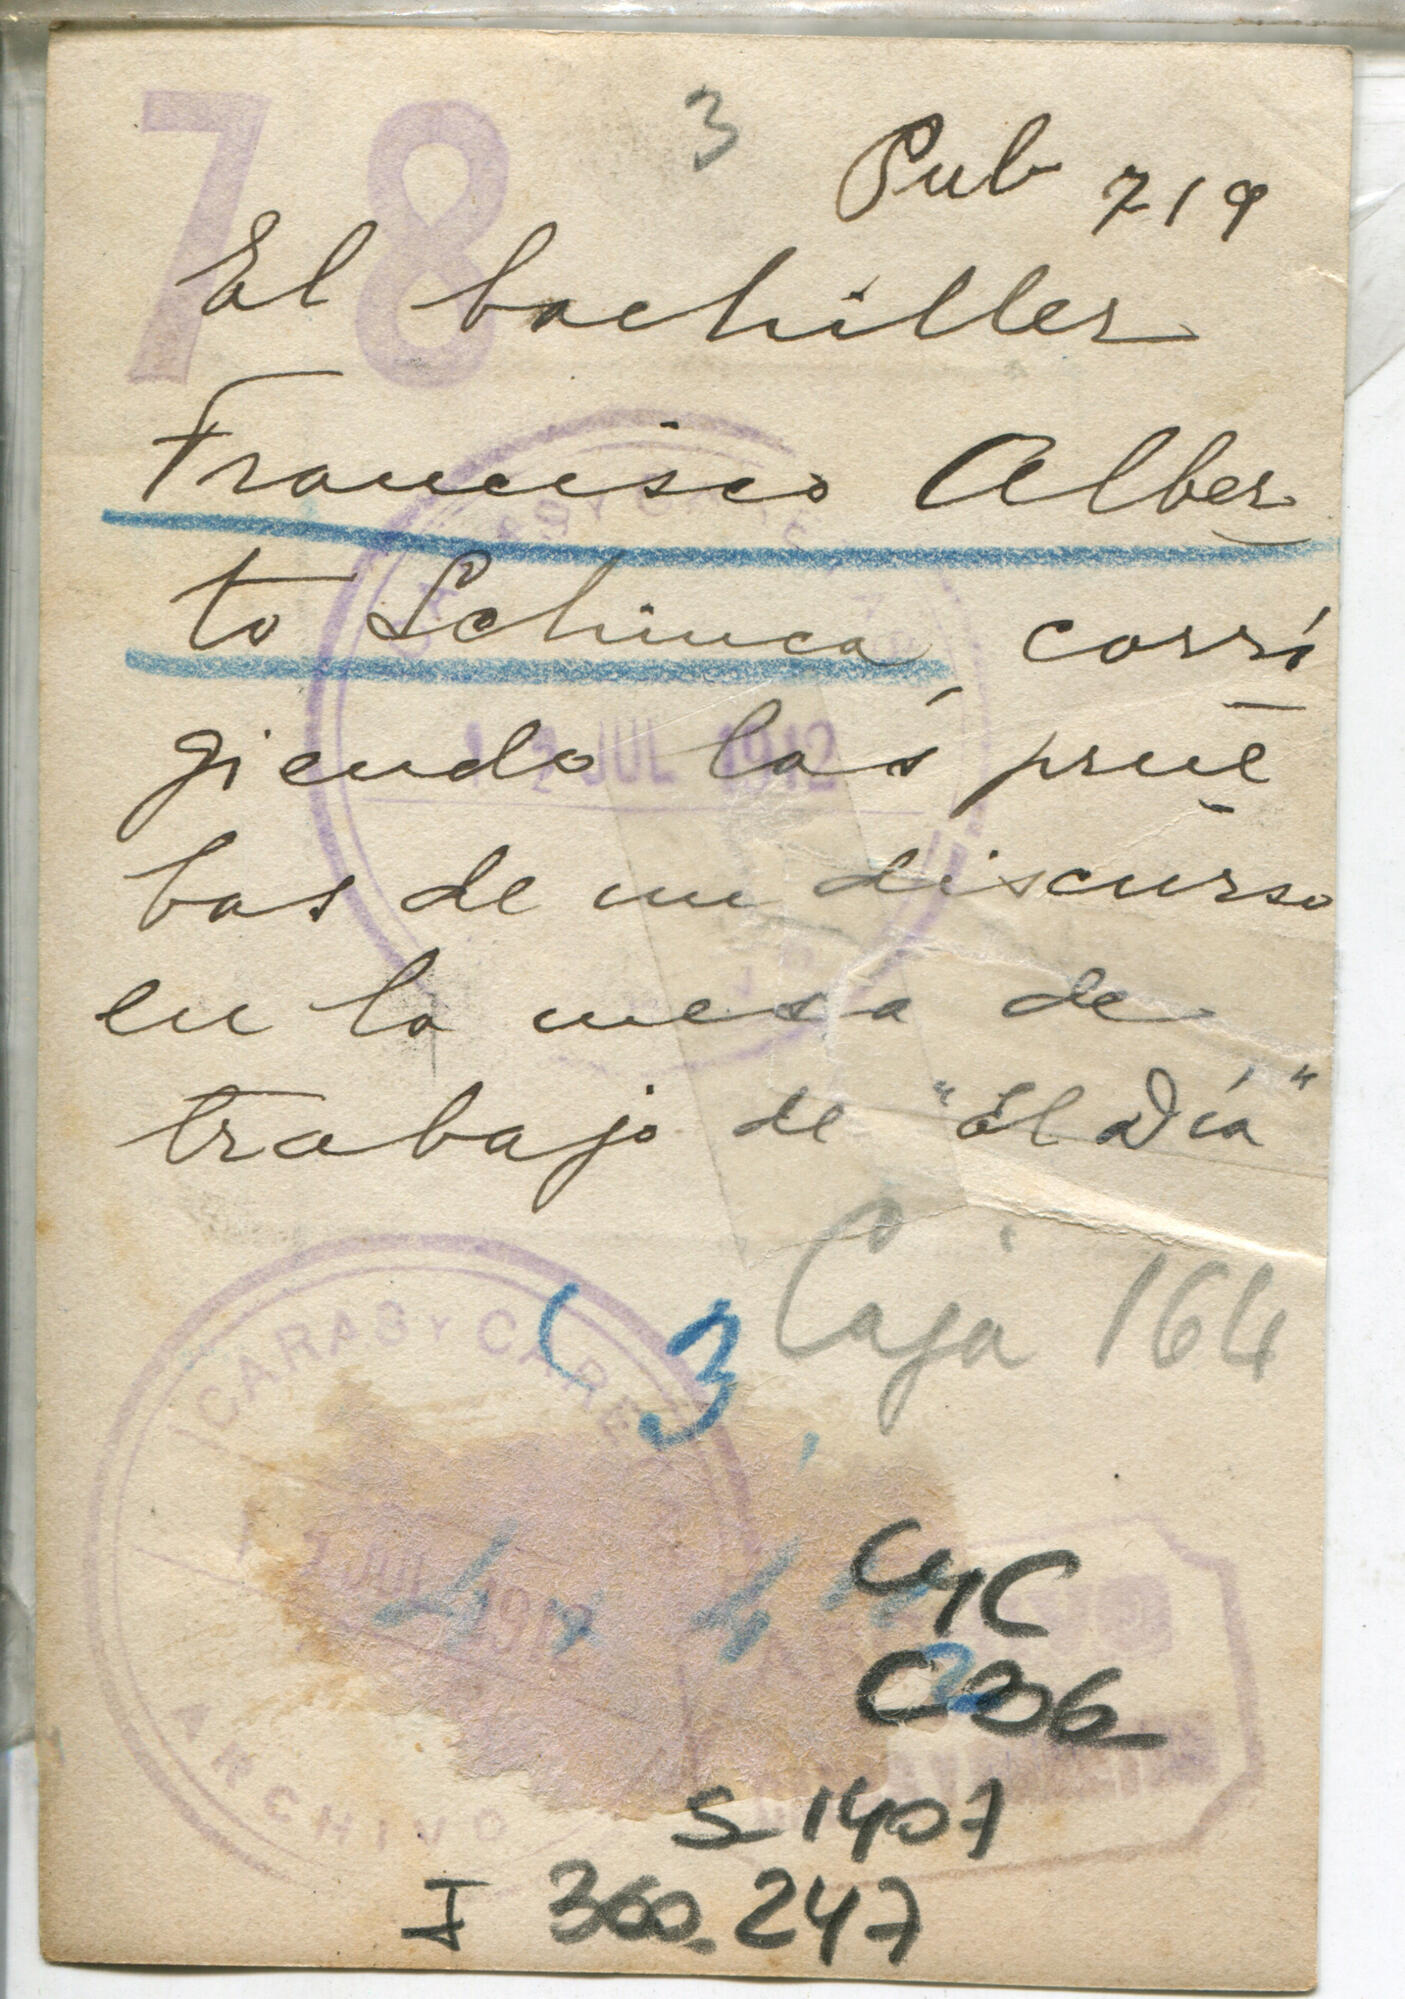 78
3
Pub 719
El bachiller
Francisco Alber
to Schinca, corri
giendo las prue
bas de un discurso
en la mesa de
trabajo de "El Día"
CARAS Y CARE
12 JUL 1912
Caja 164
3
CARAS Y CARE
JUL 1912
ARCHIVO
4 x 4
CyC
C206
S 1407
I 360.247